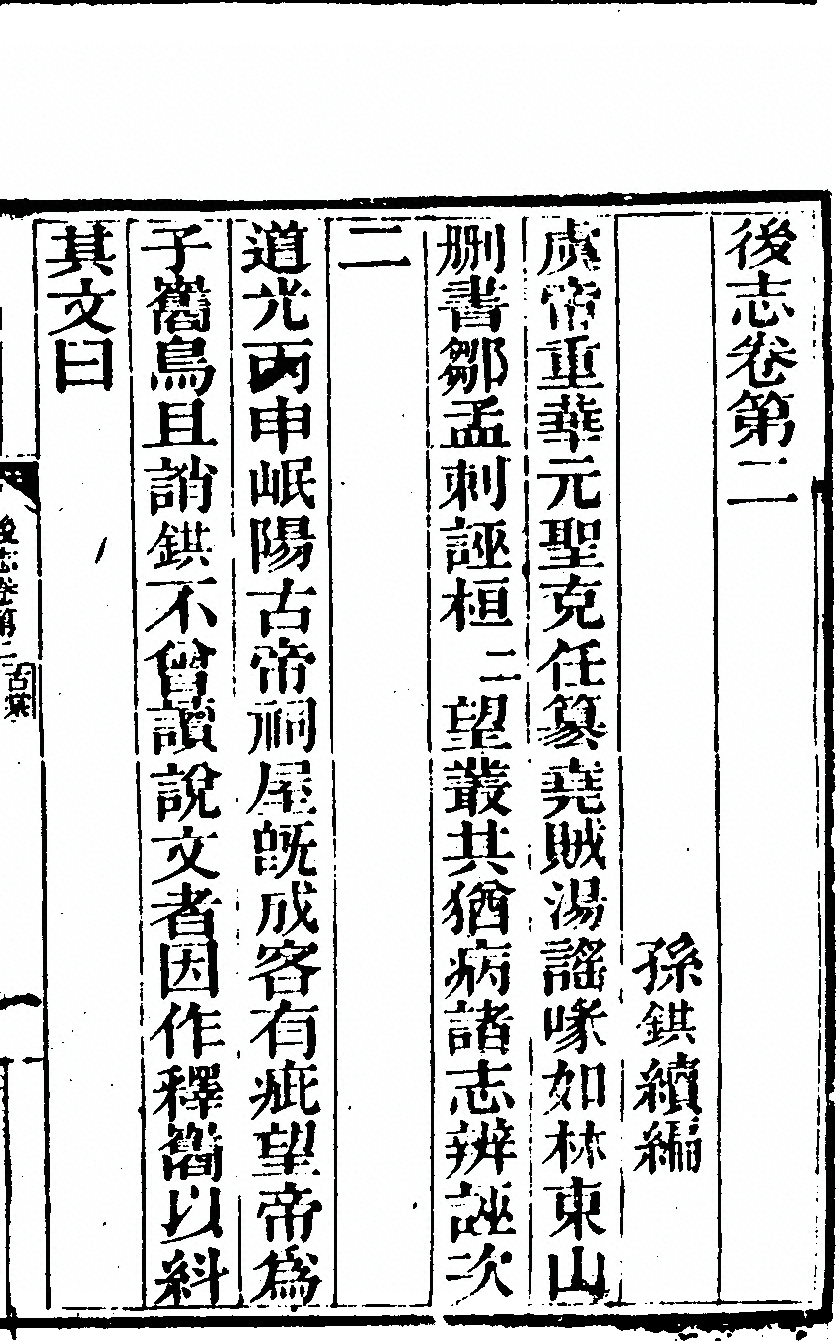 後志卷第二
孫錤續編
虞帝重華元聖克任篡堯賊湯謠喙如林東山
删書鄒孟刺誣桓二望叢共猶病諸志辨誣次
二
道光丙申岷陽古帝祠屋既成客有疵望帝爲
子巂鳥且誚錤不曾讀說文者因作釋巂以糾
其文曰
後志卷第二
古棠
一